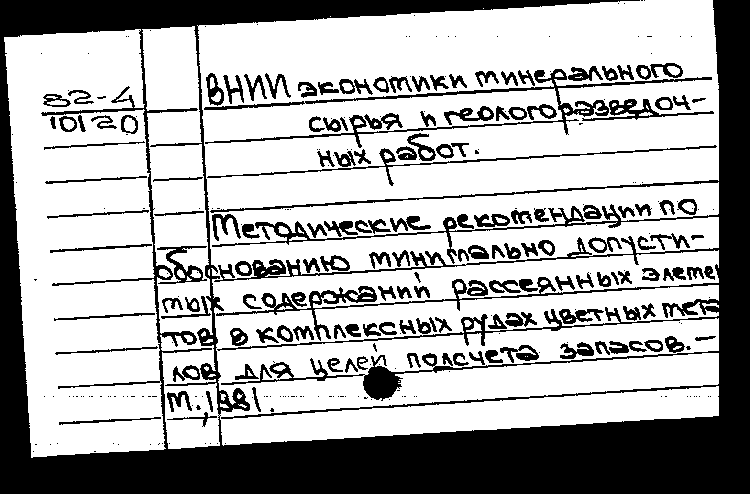 82-4
10120
ВНИИ экономики минерального
сырья и геологоразведоч-
ных работ.
Методические рекомендации по
обоснованию минимально допусти-
мых содержаний рассеянных элемен
тов в комплексных рудах цветных мета
лов для целей подсчета запасов.-
М., 1981.